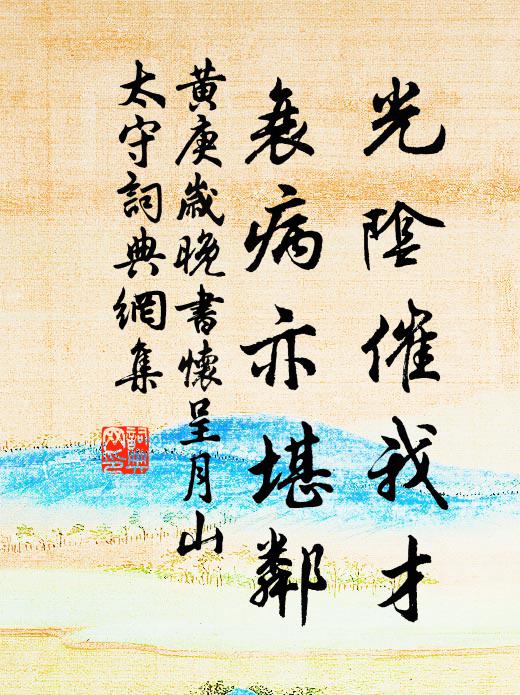 光陰催我才
衰病亦堪鄰
黄庚歲晚書懷呈月山
太守詞典網集